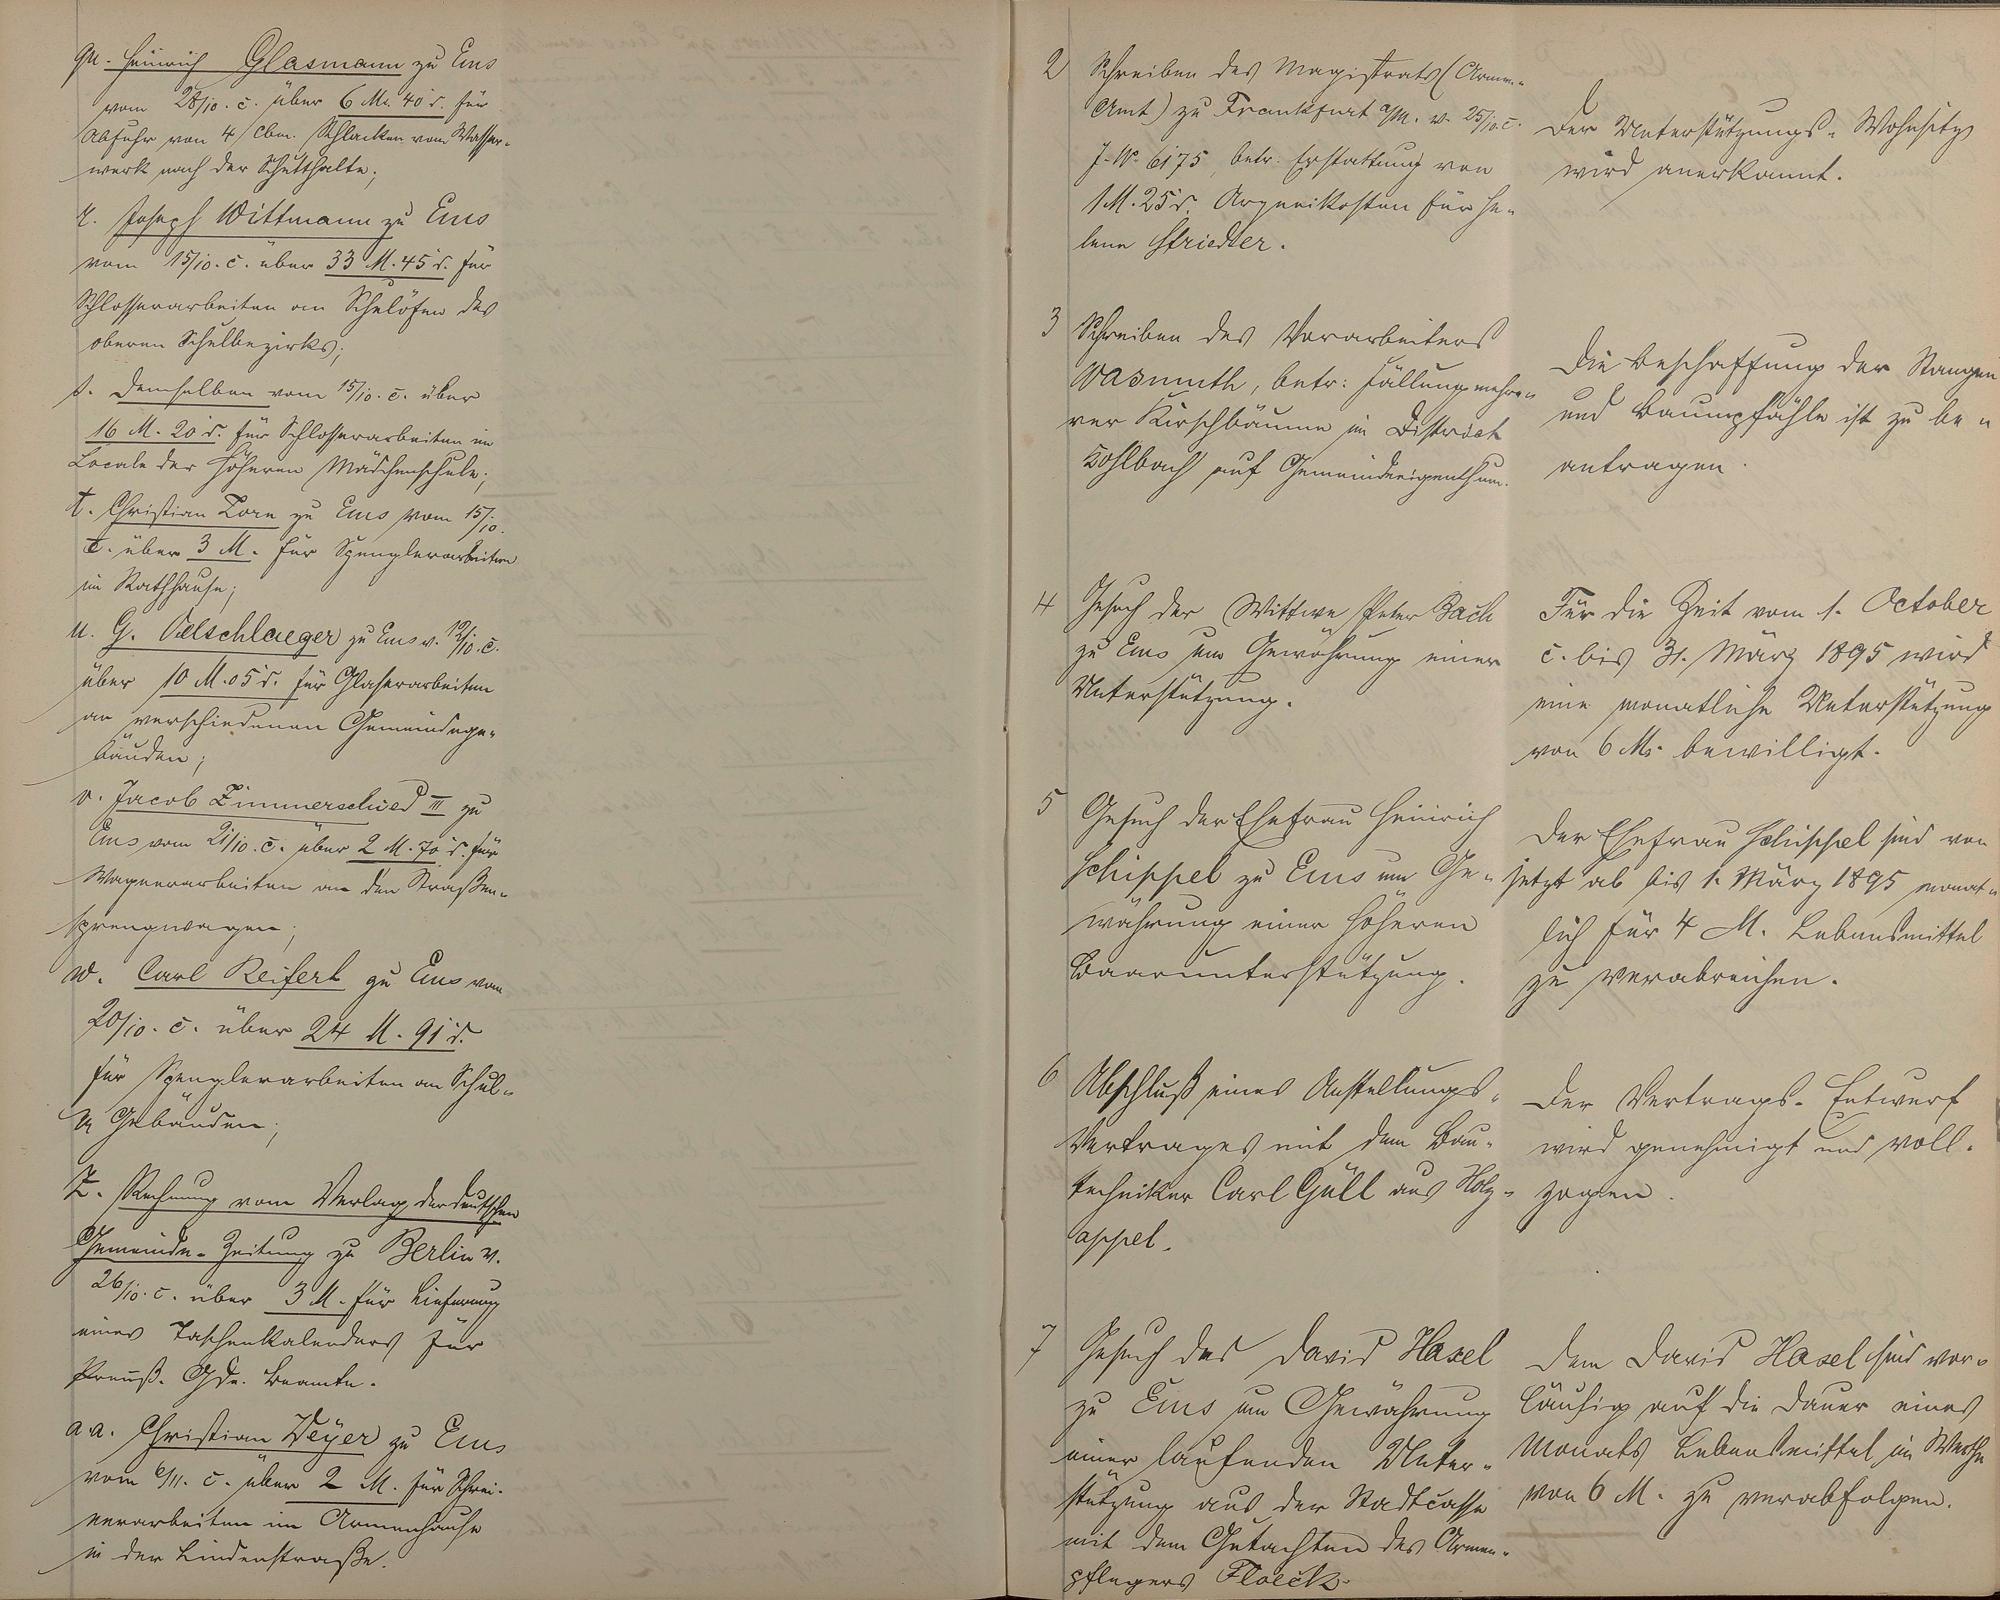 qu. Heinrich Glasmann zu Ems
vom 28/10. c. über 6 M. 40 d. für
Abfuhr von 4 cbm. Schlacken vom Wasser-
werk nach der Schutthalte;
r. Joseph Wittmann zu Ems
vom 15/10. c. über 33 M. 45 d. für
Schlosserarbeiten an Schulöfen des
oberen Schulbezirks;
s. Demselben vom 15/10. c. über
16 M. 20 d. für Schlosserarbeiten im
Locale der höheren Mädchenschule;
t. Christian Zorn zu Ems vom 15/10.
c. über 3 M. für Spenglerarbeiten
im Rathhause;
u. G. Oelschlaeger zu Ems v. 19/10. c.
über 10 M. 05 d. für Glaserarbeiten
an verschiedenen Gemeindege-
bäuden;
v. Jacob Zimmerschied III zu
Ems vom 21/10. c. über 2 M. 70 d. für
Wagnerarbeiten an den Straßen-
sprengwagen;
w. Carl Reifert zu Ems vom
20/10. c. über 24 M. 91 d.
für Spenglerarbeiten an Schul-
Gebäuden;
Z. Rechnung vom Verlag der deutschen
Gemeinde-Zeitung zu Berlin v.
26/10. c. über 3 M. für Lieferung
eines Taschenkalenders für
Preuß. Gde. Beamte.
a.a. Christian Weyer zu Ems
vom 6/11. c. über 2 M. für Schrei-
nerarbeiten im Armenhause
in der Lindenstraße.
2 Schreiben des Magistrats (Armen-
Amt) zu Frankfurt a/M. v. 25/10. c.
J.-No. 6175, betr. Erstattung von
1 M. 25 d. Arzneikosten für He-
lene Striedter.
Der Unterstützungs-Wohnsitz
wird anerkannt.
3 Schreiben des Vorarbeiters
Wasmuth, betr: Fällung mehre-
rer Kirschbäume im District
Kohlbach auf Gemeindeeigenthum.
Die Beschaffung der Stangen
und Baumpfähle ist zu be-
antragen.
4 Gesuch der Wittwe Peter Bach
zu Ems um Gewährung einer
Unterstützung.
Für die Zeit vom 1. October
c. bis 31. März 1895 wird
eine monatliche Unterstützung
von 6 M. bewilligt.
5 Gesuch der Ehefrau Heinrich
Schippel zu Ems um Ge-
währung einer höheren
Baarunterstützung.
Der Ehefrau Schippel sind von
jetzt ab bis 1. März 1895 monat-
lich für 4 M. Lebensmittel
zu verabreichen.
6 Abschluß eines Anstellungs-
Vertrages mit dem Bau-
techniker Carl Güll aus Holz-
appel.
Der Vertrags-Entwurf
wird genehmigt und voll-
zogen.
7 Gesuch des David Hasel
zu Ems um Gewährung
einer laufenden Unter-
stützung aus der Stadtcasse
mit dem Gutachten des Armen-
pflegers Floeck.
Dem David Hasel sind vor-
läufig auf die Dauer eines
Monats Lebensmittel im Werthe
von 6 M. zu verabfolgen.